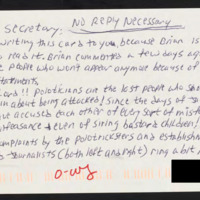 Secretary: No Reply Necessary
writing this card to you because Brian is
read it. Brian commented a few days ago
people who won't appear anymore because of
statements
Card!! Politicians are the last people who should
in about being attacked! Since the days of
accused each other of every sort of mis
feasance & even of siring bastard children!
omplaints by the politricksters and establishm
Journalists (both left and right) ring a bit